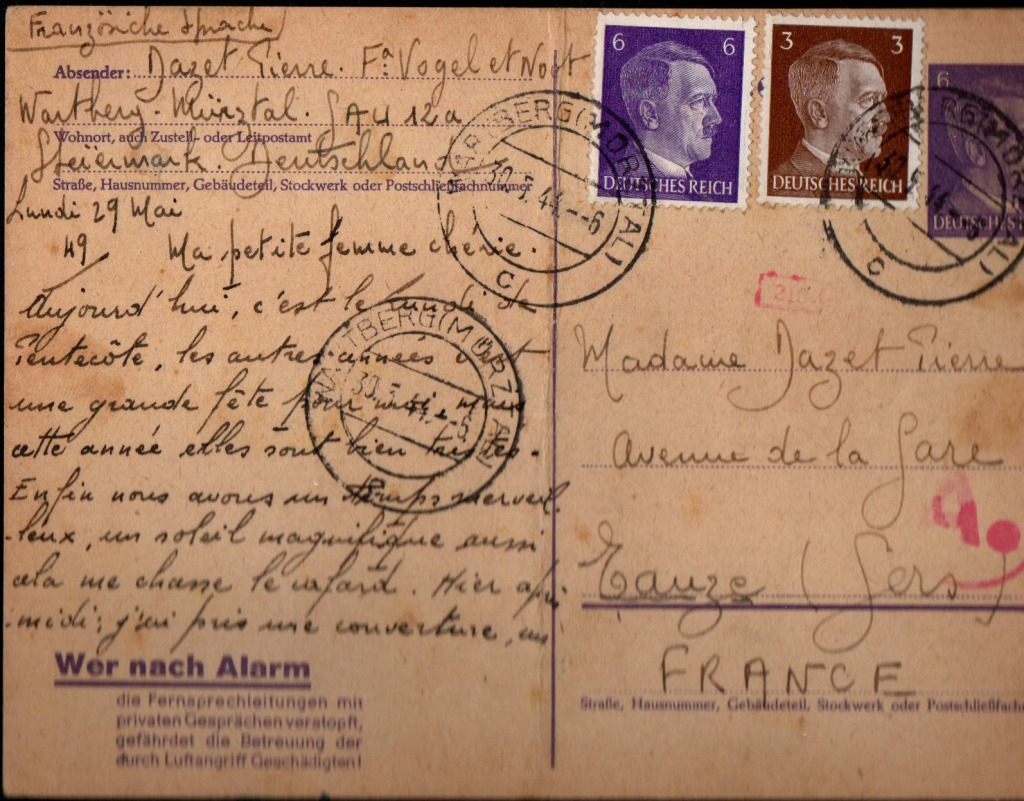 Französiche Sprache
Absender: Dazet Pierre. Fa: Vogel et Noot
Wartberg. Mürztal. GAU 12a
Wohnort, auch Zustell- oder Leitpostamt
Steiermark. Deutschland
Straße, Hausnummer, Gebäudeteil, Stockwerk oder Postschließfachnummer
Lundi 29 Mai
49 Ma petite femme chérie.
Aujourd'hui, c'est le lundi de
Pentecôte, les autres années c'est
une grande fête pour moi mais
cette année elles sont bien tristes.
Enfin nous avons un temps merveil
-leux, un soleil magnifique aussi
cela me chasse le cafard. Hier après
-midi; j'ai pris une couverture, un
Wer nach Alarm
die Fernsprechleitungen mit
privaten Gesprächen verstopft,
gefährdet die Betreuung der
durch Luftangriff Geschädigten!
6 6
DEUTSCHES REICH
3 3
DEUTSCHES REICH
6
DEUTSCHES
WARTBERG (MÜRZTAL)
30.5.44.--6
c
WARTBERG (MÜRZTAL)
30.5.44.--6
c
WARTBERG (MÜRZTAL)
30.5.44.--6
Madame Dazet Pierre
Avenue de la Gare
Eauze (Gers)
FRANCE
Straße, Hausnummer, Gebäudeteil, Stockwerk oder Postschließfach